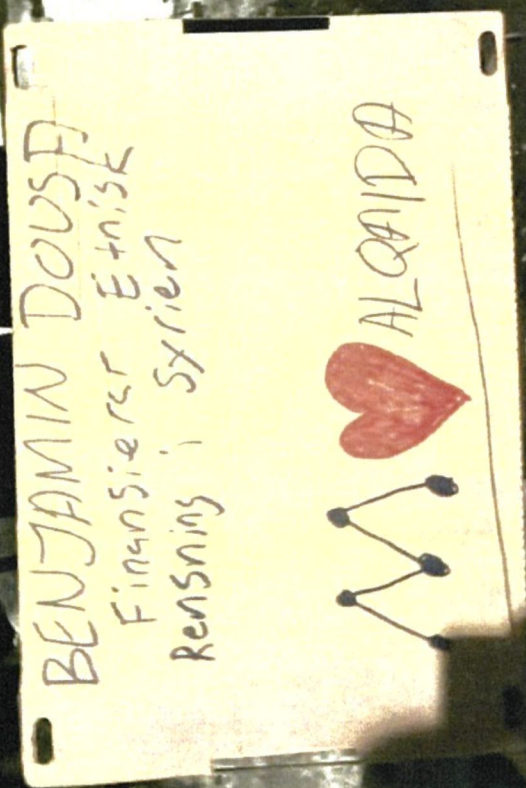 BENJAMIN DOUSA
Finansierar Etnisk
Rensning i Syrien
M ❤ ALQAIDA